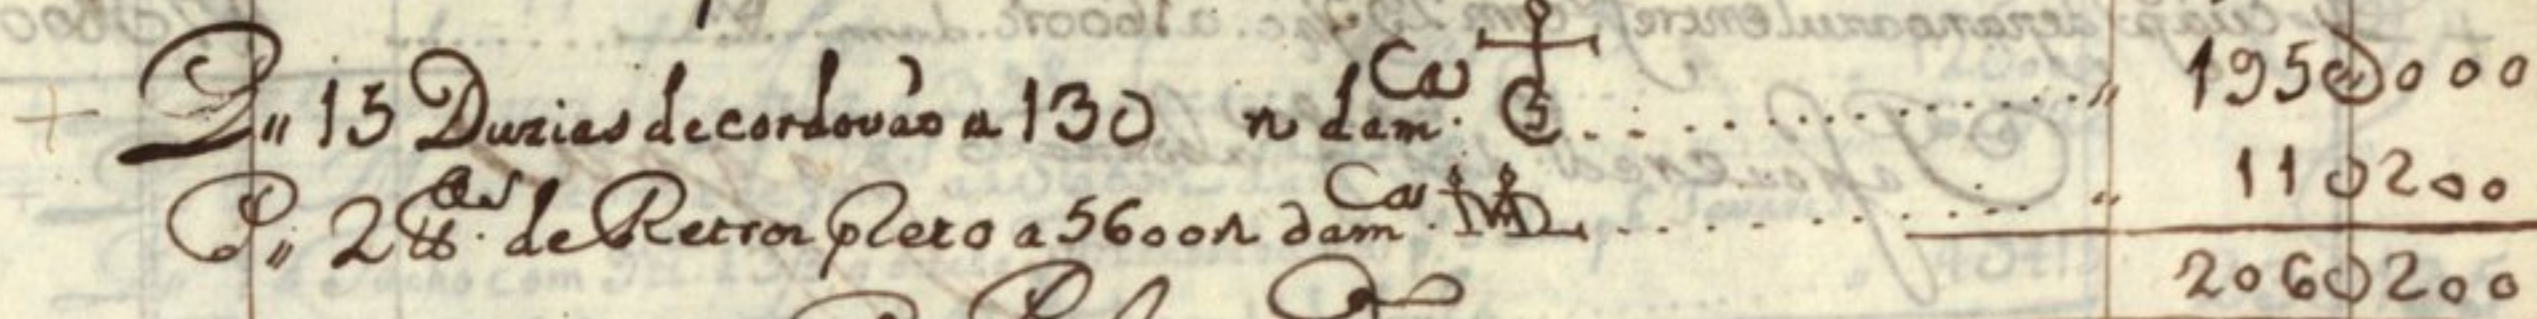 P. 15 Duzias de cordovaõ a 130 r da m.ᶜᵃ 195$000
P. 2 ℔.ᵃˢ de Retros preto a 5600 r da m.ᶜᵃ 11$200
206$200